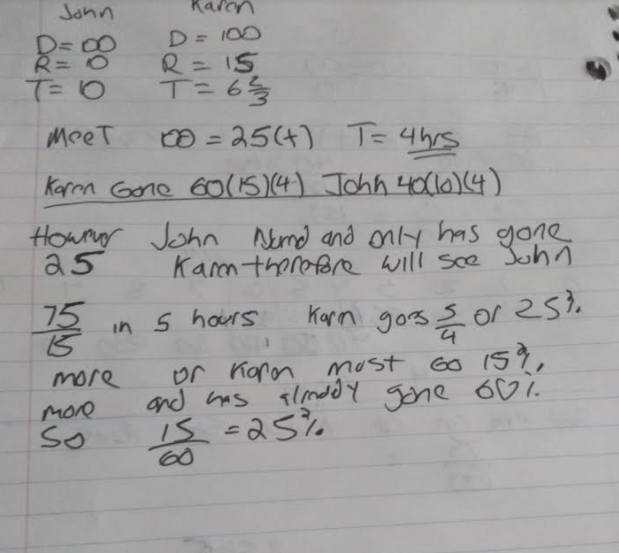 John Karen
D= 00 D= 100
R= 10 R= 15
T= 10 T= 6 2/3
Meet 00 = 25(t) T= 4hrs
Karen Gone 60(15)(4) John 40(10)(4)
However John and only has gone
25 Karen therefore will see John
75/15 in 5 hours Karn goes 5/4 or 25%
more or Karen must go 15%
more and has already gone 60%
So 15/60 = 25%